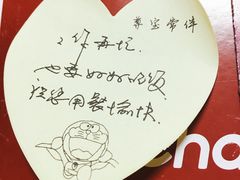 尊宝常伴
工作再忙,
也要好好吃饭,
祝您用餐愉快.